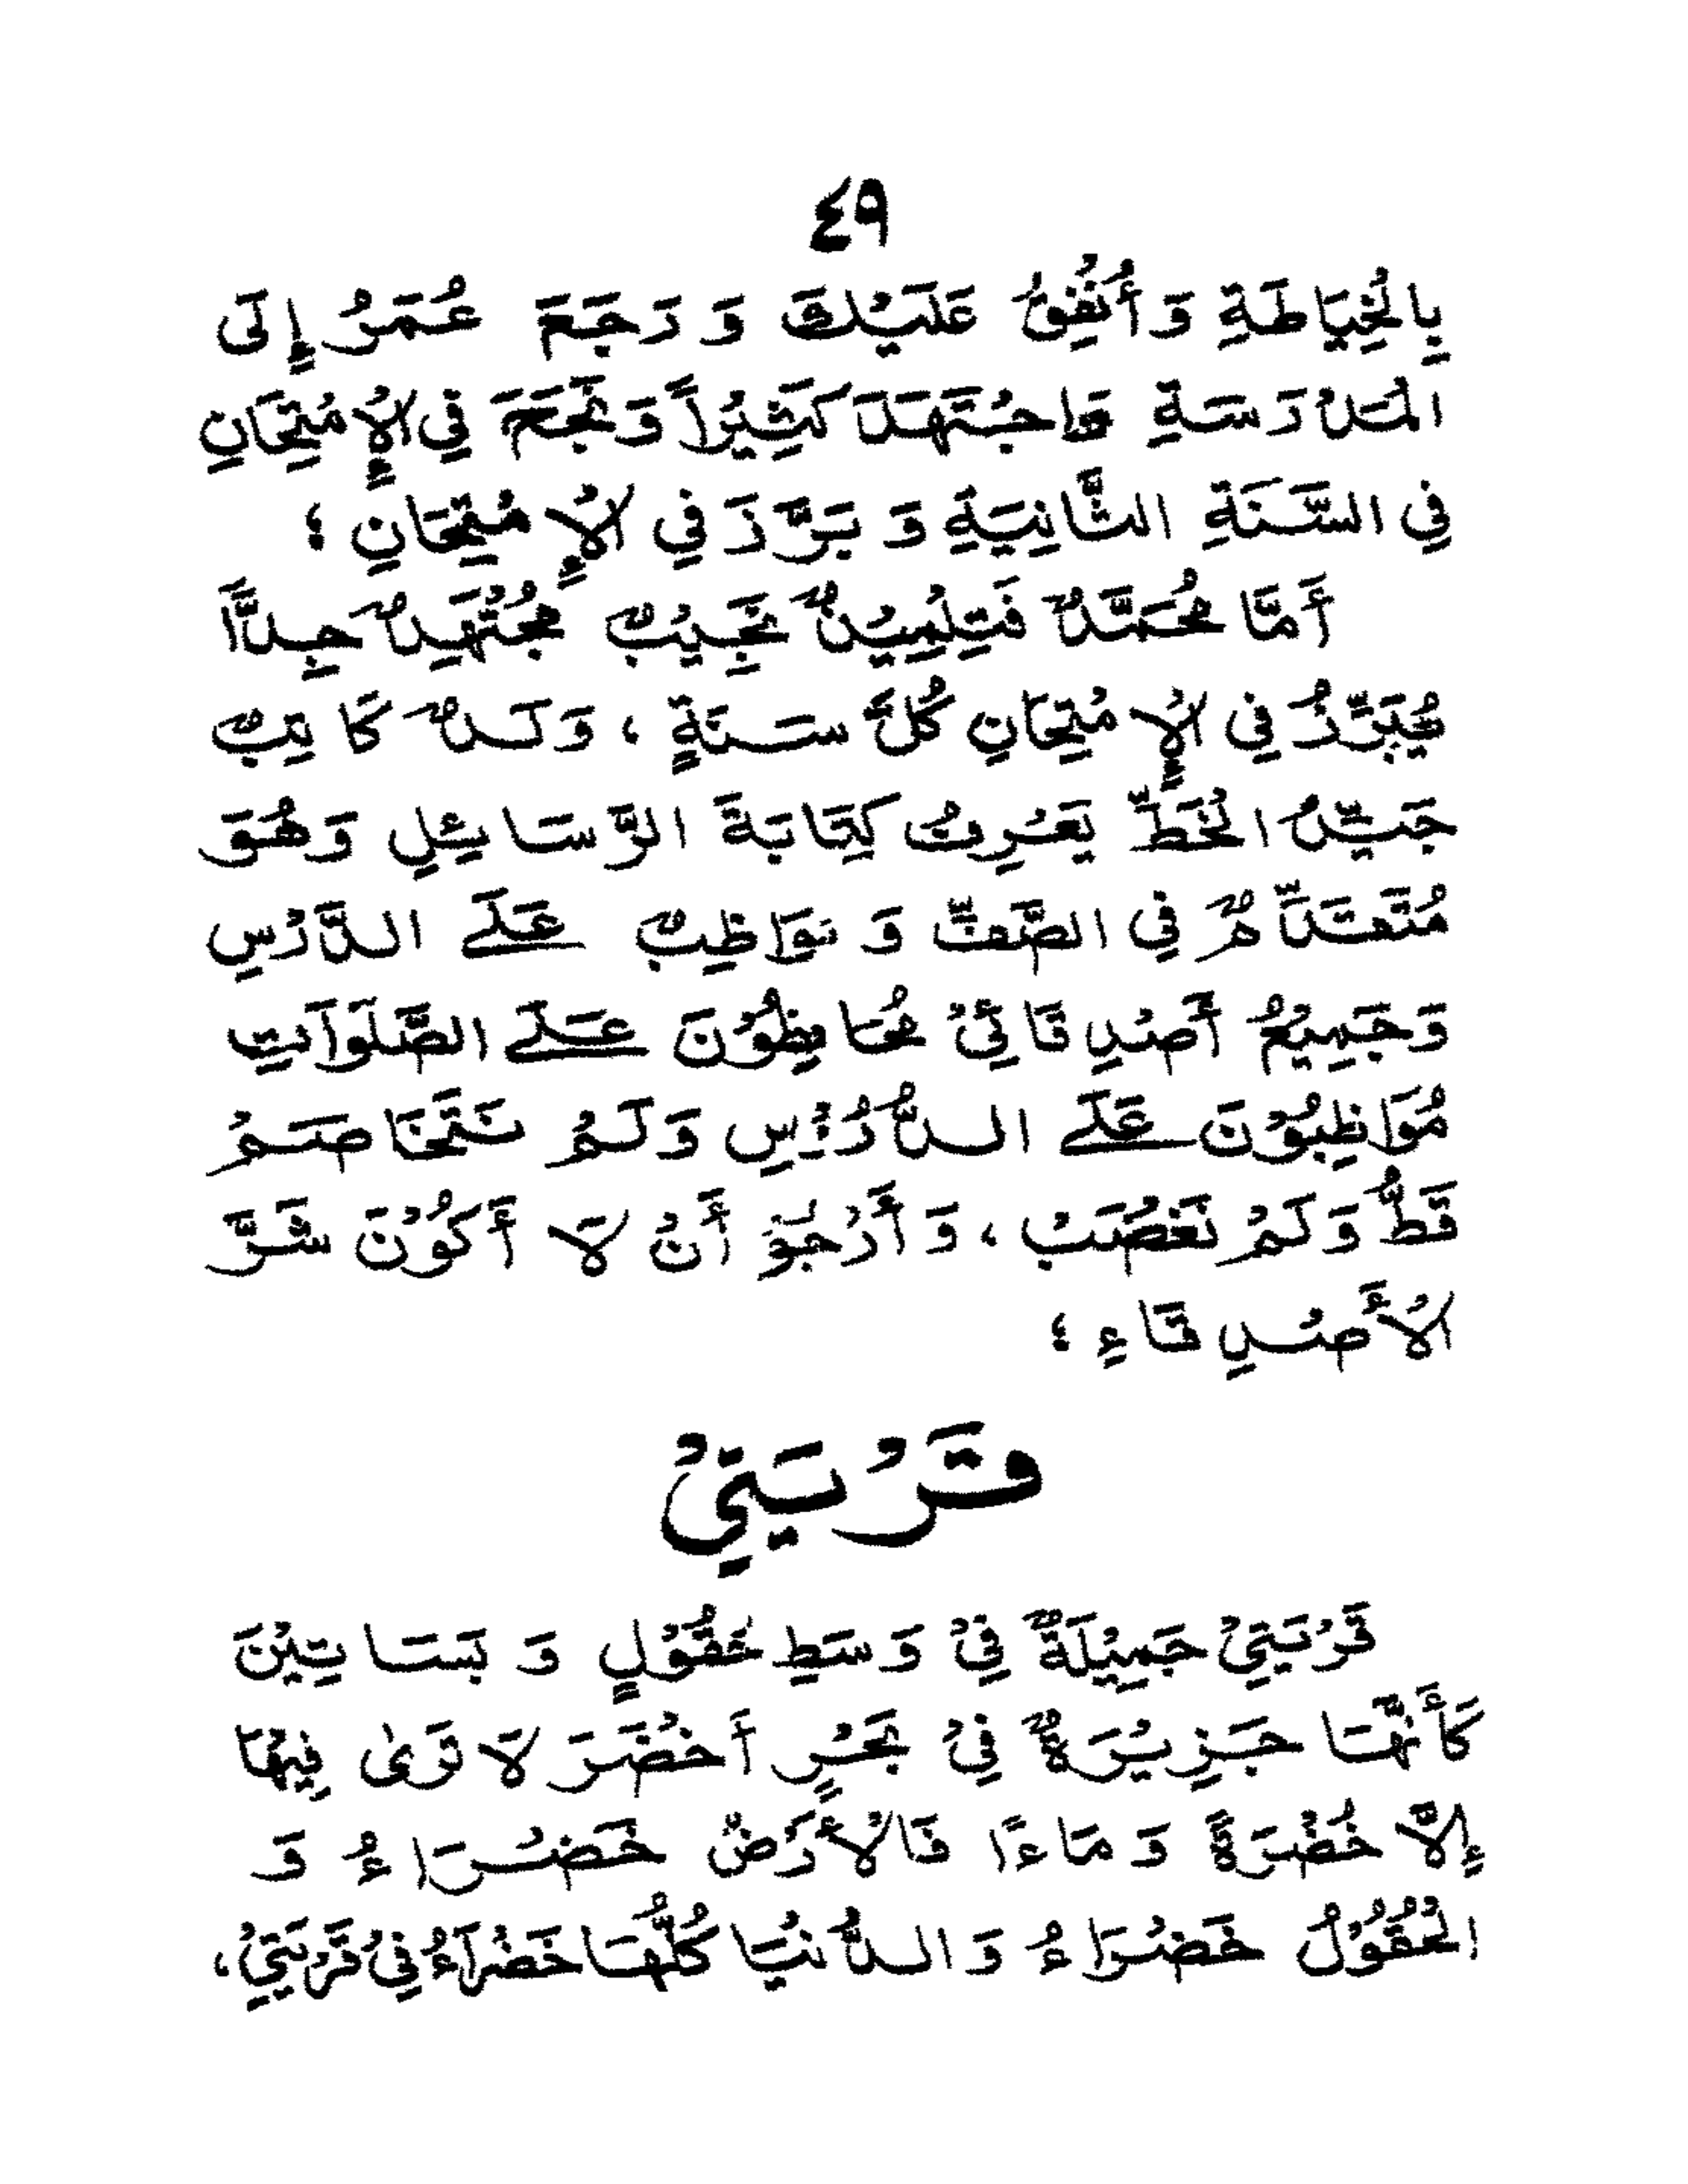 ٤٩
بِالْخِيَاطَةِ وَأُنْفِقُ عَلَيْكَ وَ رَجَعَ عُمَرُ إِلَى
الْمَدْرَسَةِ وَاجْتَهَدَ كَثِيْراً وَنَجَحَ فِي الْإِمْتِحَانِ
فِي السَّنَةِ الثَّانِيَةِ وَ بَرَّزَ فِي الْإِمْتِحَانِ ؛
أَمَّا مُحَمَّدٌ فَتِلْمِيْذٌ نَجِيْبٌ مُجْتَهِدٌ جِدًّا
يُبَرِّزُ فِي الْإِمْتِحَانِ كُلَّ سَنَةٍ ، وَلَدٌ كَاتِبٌ
جَيِّدُ الْخَطِّ يَعْرِفُ كِتَابَةَ الرَّسَائِلِ وَهُوَ
مُتَقَدِّمٌ فِي الصَّفِّ وَ مَوَاظِبٌ عَلَى الدَّرْسِ
وَجَمِيْعُ أَصْدِقَائِيْ مُحَافِظُوْنَ عَلَى الصَّلَوَاتِ
مُوَاظِبُوْنَ عَلَى الدُّرُوْسِ وَلَمْ نَتَخَاصَمْ
قَطُّ وَلَمْ نَغْضَبْ ، وَأَرْجُوْ أَنْ لَا أَكُوْنَ شَرَّ
الْأَصْدِقَاءِ ؛
قَرْيَتِيْ
قَرْيَتِيْ جَمِيْلَةٌ فِيْ وَسَطِ حُقُوْلٍ وَ بَسَاتِيْنَ
كَأَنَّهَا جَزِيْرَةٌ فِيْ بَحْرٍ أَخْضَرَ لَا تَرىٰ فِيْهَا
إِلَّا خُضْرَةً وَ مَاءً ا فَالْأَرْضُ خَضْرَاءُ وَ
الْحُقُوْلُ خَضْرَاءُ وَ الدُّنْيَا كُلُّهَا خَضْرَاءُ فِيْ قَرْيَتِيْ ،